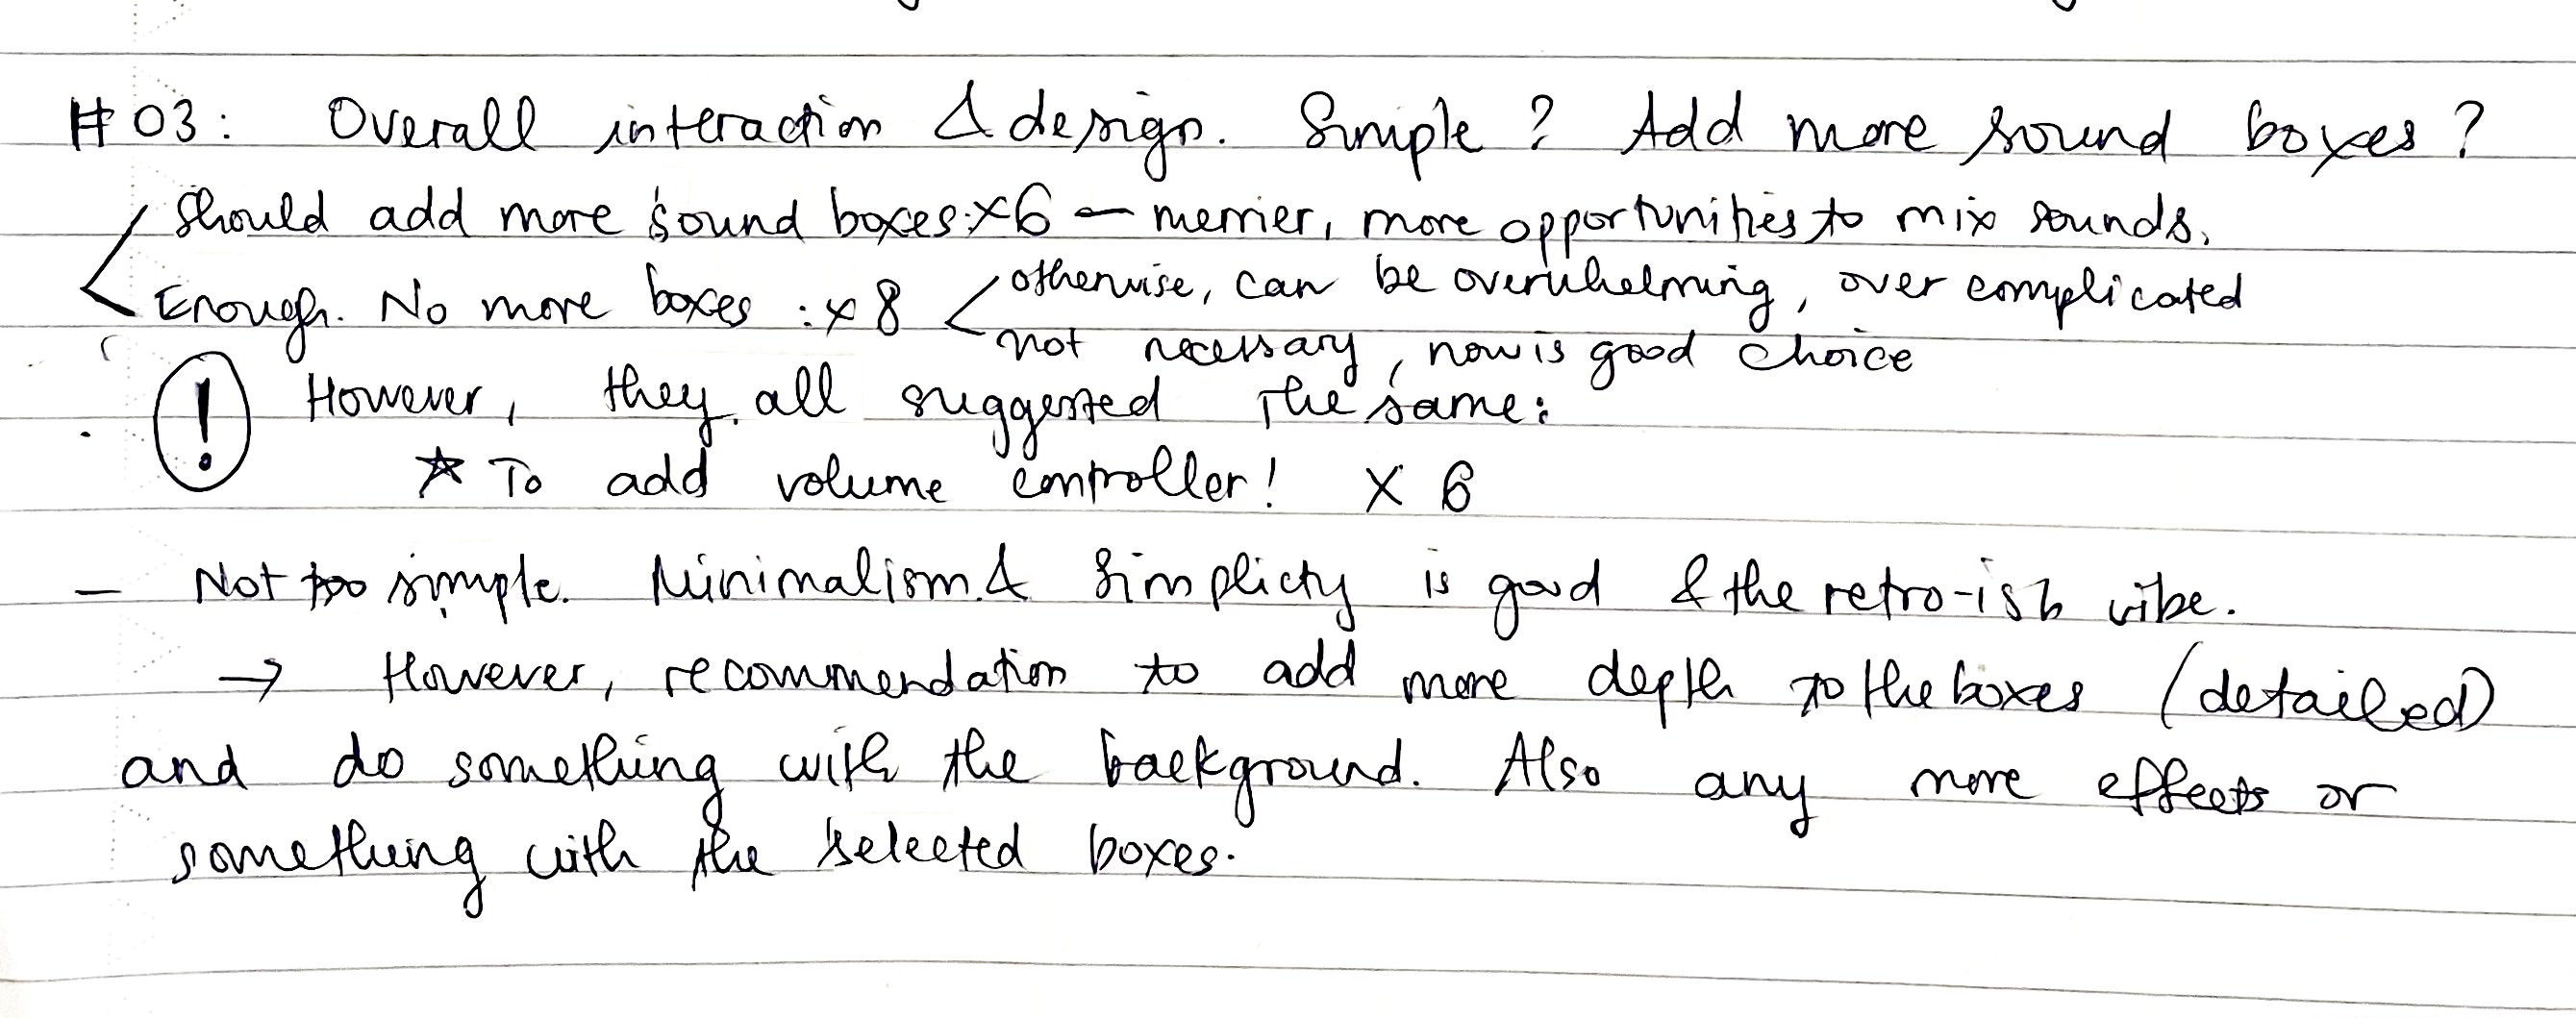 #03: Overall interaction & design. Simple? Add more sound boxes?
Should add more sound boxes: x6 — merrier, more opportunities to mix sounds.
Enough. No more boxes : x 8 < otherwise, can be overwhelming, over complicated
not necessary, now is good choice
! However, they all suggested the same:
☆ To add volume controller! X 6
— Not too simple. Minimalism & Simplicty is good & the retro-ish vibe.
→ However, recommendation to add more depth to the boxes (detailed)
and do something with the background. Also any more effects or
something with the selected boxes.